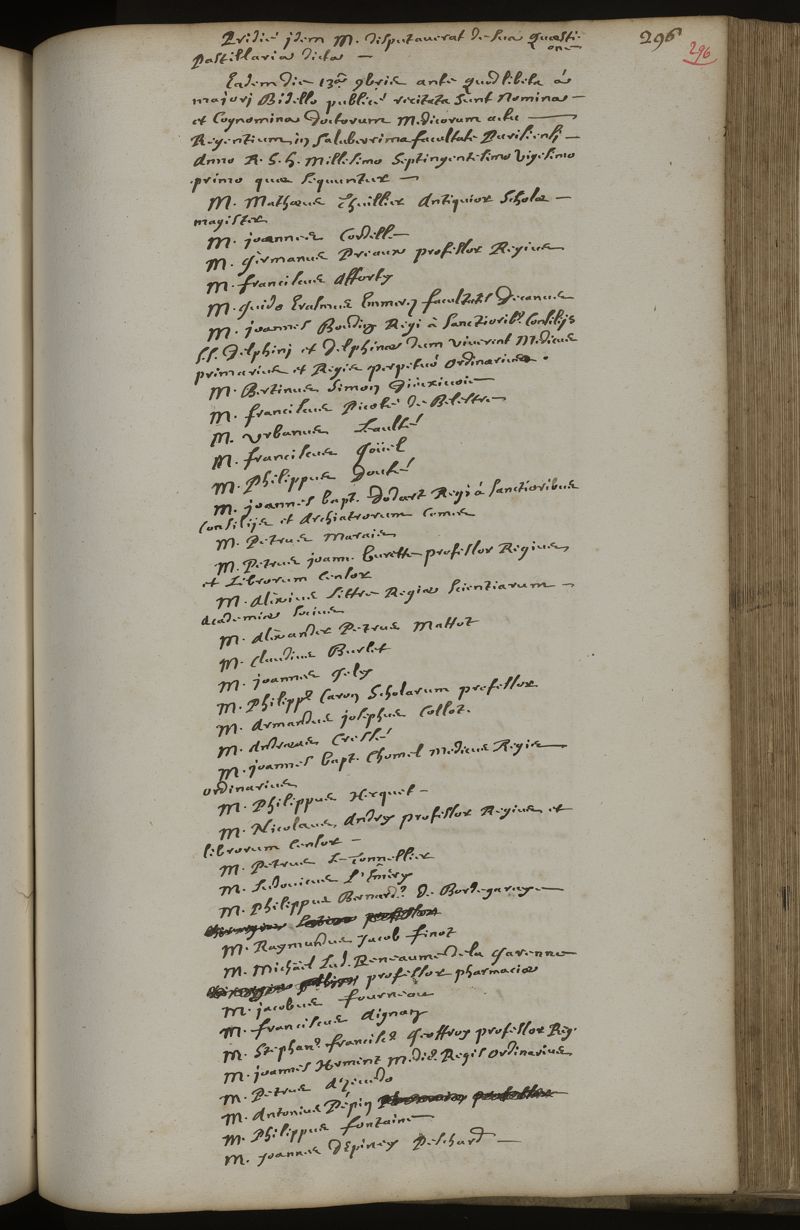 296
296
Pridiè jdem M. disputaverat de sua quæsti-
one
Pastillaria dicta —
Eadem die 13ª 9bris ante quodlibeta â
majori Bidello publicè recitata sunt Nomina —
et Cognomina doctorum Medicorum actu —
Regentium in saluberrima facultate Parisiensj —
Anno R. S. h. Millesimo Septingentesimo Vigesimo
primo quæ sequuntur —
M. Mathæus Thuillier Antiquior Scholæ —
magister
M. joannes Cordelle
M. Germanus Preaux professor Regius
M. franciscus Afforty
M. Guido Erasmus Emmerez facultatis Decanus
M. joannes Boudin Regi â Sanctiorib9 Consilijs
S.S. Delphinj et Delphinæ dum viverent Medicus
primarius et Regis perpetuò ordinarius.
M. Bertinus Simon Dieuxivoie
M. franciscus Picoté de Belestre
M. Urbanus Leaulté
M. franciscus Goüel
M. Philippus Douté
M. joannes bapt. Dodart Regi â sanctioribus
Consilijs et Archiatrorum Comes
M. Petrus Marais
M. Petrus joann. burette professor Regius
et Librorum Censor
M. Alexius Littre Regiæ Scientiarum —
Academiæ Socius
M. Alexander Petrus Mattot
M. Claudius Burlet
M. joannes Gelly
M. Philipp9 Caron Scholarum professor
M. Armandus josephus Collot.
M. Andræas Cressé
M. joannes bapt. Chomel Medicus Regis
ordinarius
M. Philippus Hecquet —
M. Nicolaus Andry professor Regius et
librorum Censor —
M. Petrus Le Tonnellier
M. Ludovicus L'Emery
M. Philippus Bernard9 de Bordegaraye
professor
M. Raymundus jacob finot
M. Michäel Lud. Reneaume de la Garenne
professor pharmaciæ
M. jacobus fourneau
M. franciscus Aignan
M. Stephan9 francisc9 Geoffroy professor Reg.
M. joannes Herment Medic9 Regis ordinarius
M. Petrus Azevedo
M. Antonius Pépin
M. Philippus fontaine
M. joannes dEpinay Peschard —